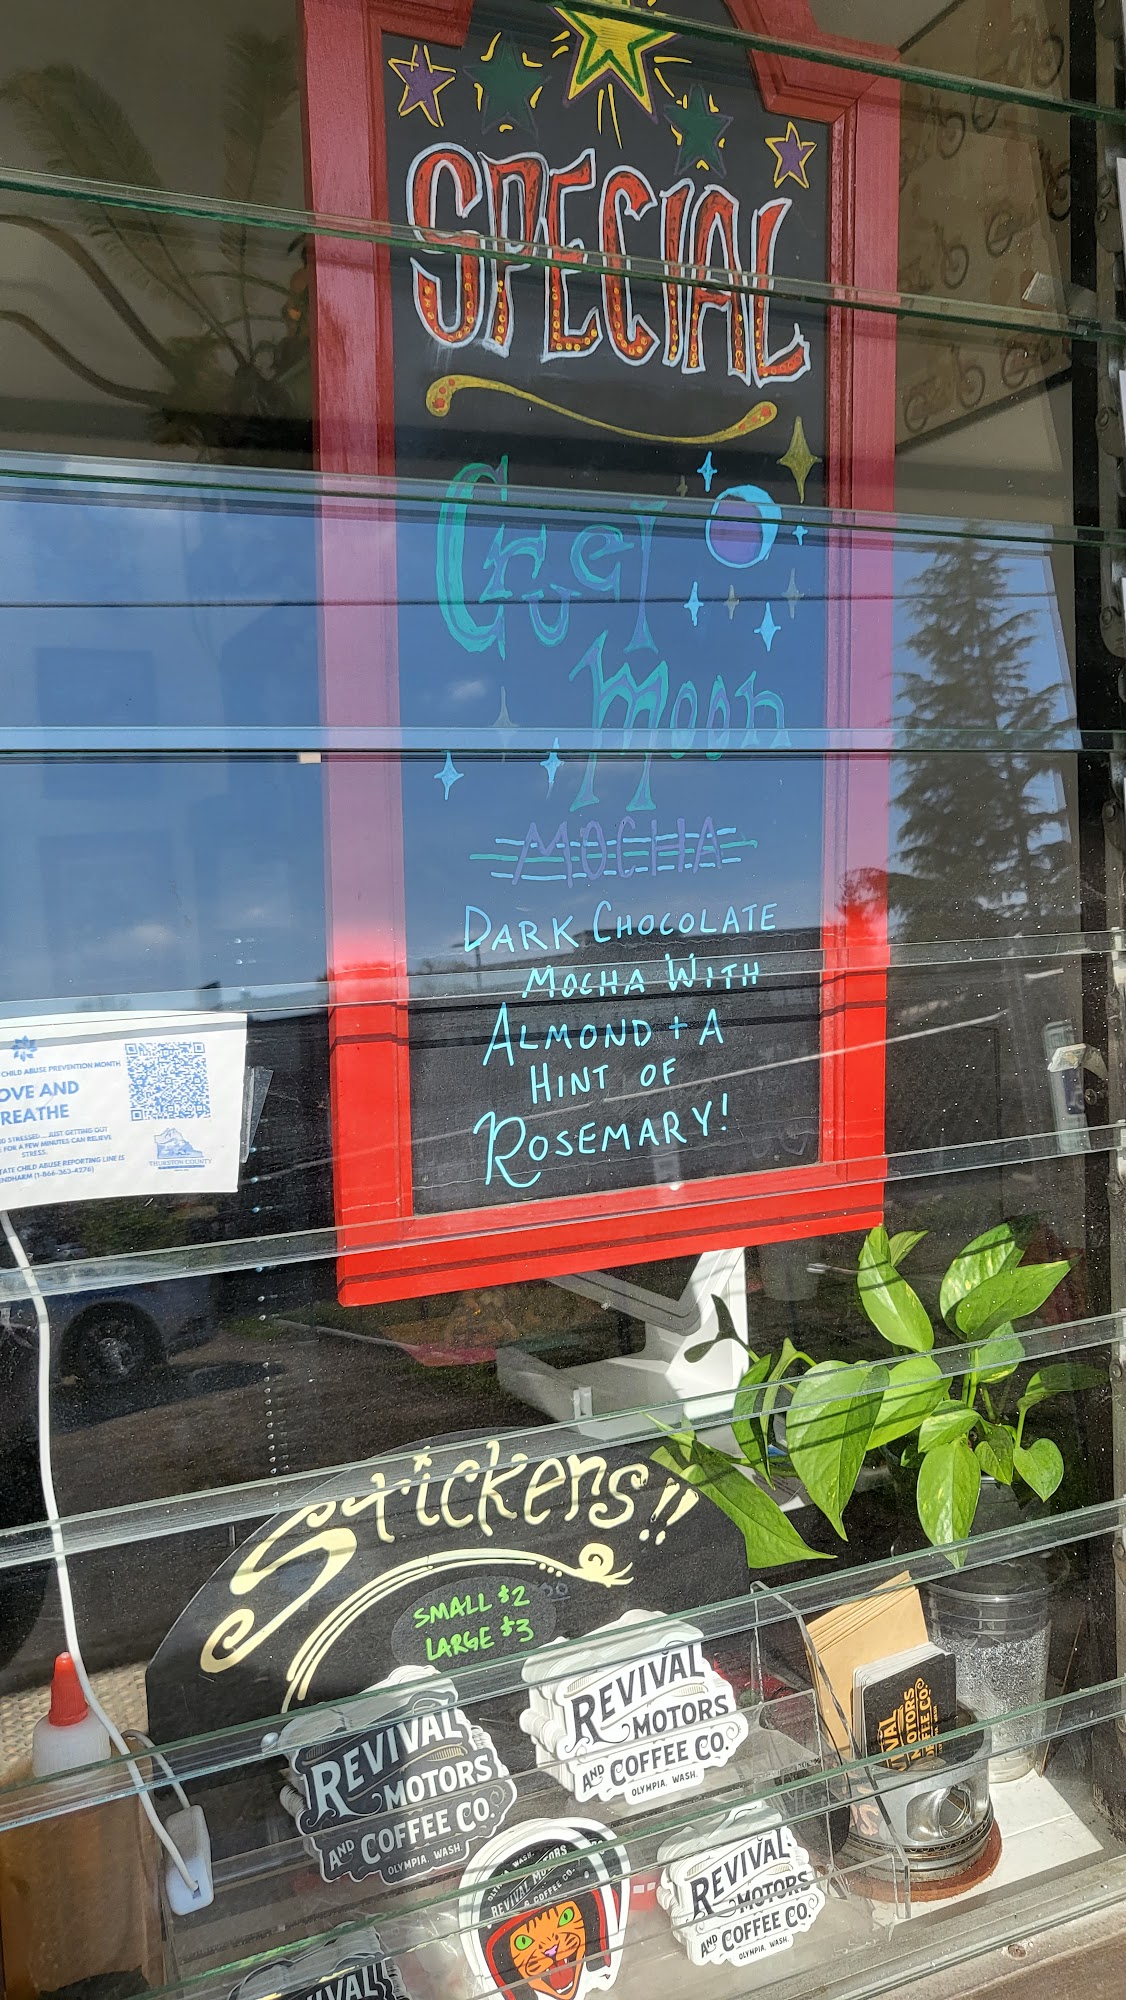 SPECIAL
Cruel
Moon
MOCHA
DARK CHOCOLATE
MOCHA WITH
ALMOND + A
HINT OF
ROSEMARY!
CHILD ABUSE PREVENTION MONTH
OVE AND
REATHE
STRESSED... JUST GETTING OUT
FOR A FEW MINUTES CAN RELIEVE
STRESS.
TATE CHILD ABUSE REPORTING LINE IS
ENDHARM (1-866-363-4276)
THURSTON COUNTY
Stickers!!
SMALL $2
LARGE $3
REVIVAL
MOTORS
AND COFFEE CO.
OLYMPIA, WASH.
REVIVAL
MOTORS
AND COFFEE CO.
OLYMPIA, WASH.
OLYMPIA, WASH.
REVIVAL MOTORS
& COFFEE CO.
REVIVAL
MOTORS
AND COFFEE CO.
OLYMPIA, WASH.
REVIVAL
VAL
MOTORS
COFFEE CO.